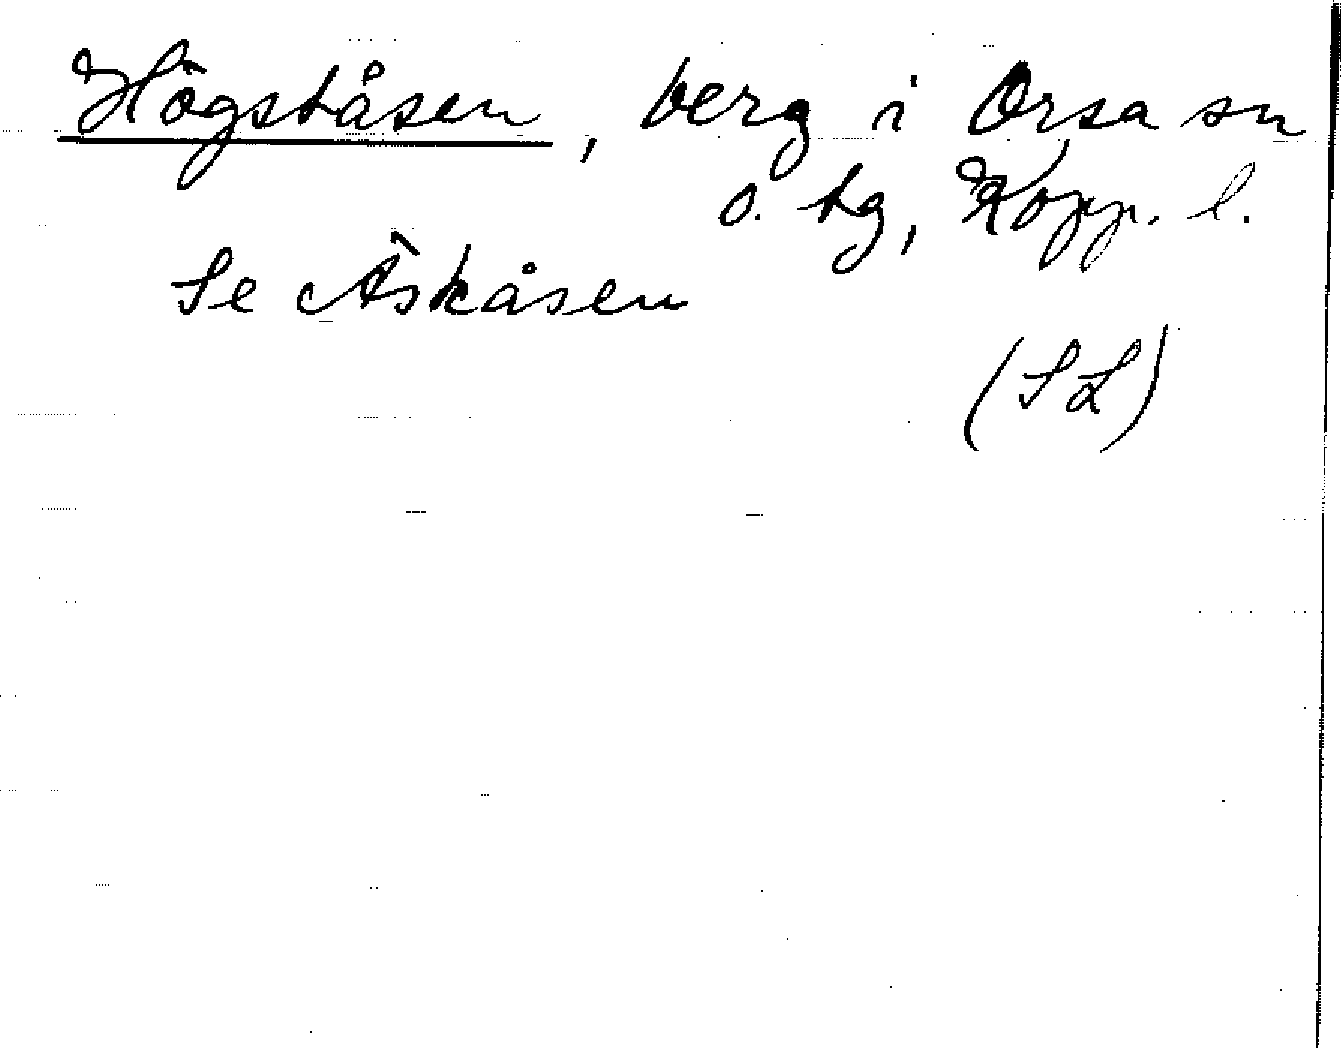 Högståsen, berg i Orsa sn
o. tg, Kopp. l.
Se Åskåsen
(SL)